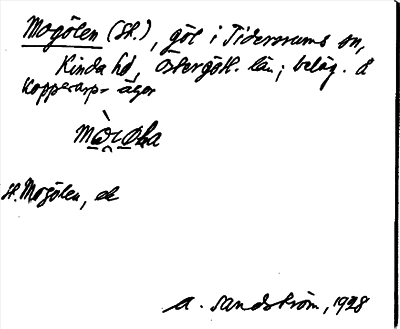 Mogölen (St.), göl i Tidersrums sn,
Kinda hd, Östergötl. län; beläg. å
Kopparp- ägor
St. Mogölen, ek
A. Sandström, 1928